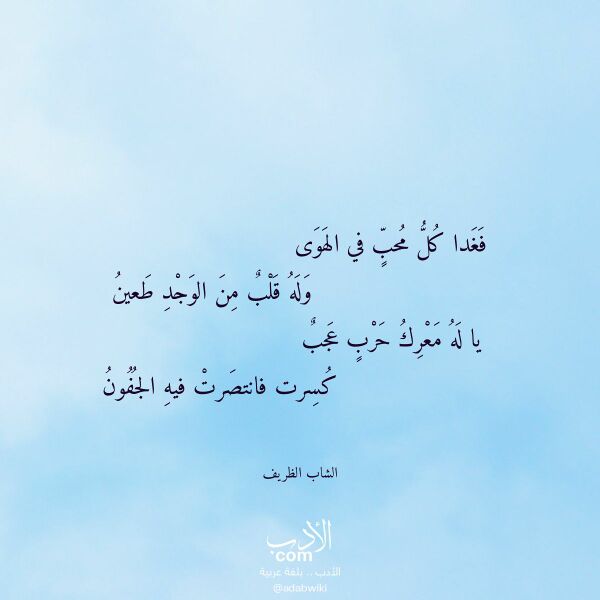 فَغَدا كُلُّ مُحبٍّ في الهَوَى
وَلَهُ قَلْبٌ مِنَ الوَجْدِ طَعينُ
يا لَهُ مَعْرِكُ حَرْبٍ عَجبٌ
كُسِرت فانتصَرتْ فيهِ الجُفُونُ
الشاب الظريف
الأدب
com
الأدب .. بلغة عربية
@adabwiki